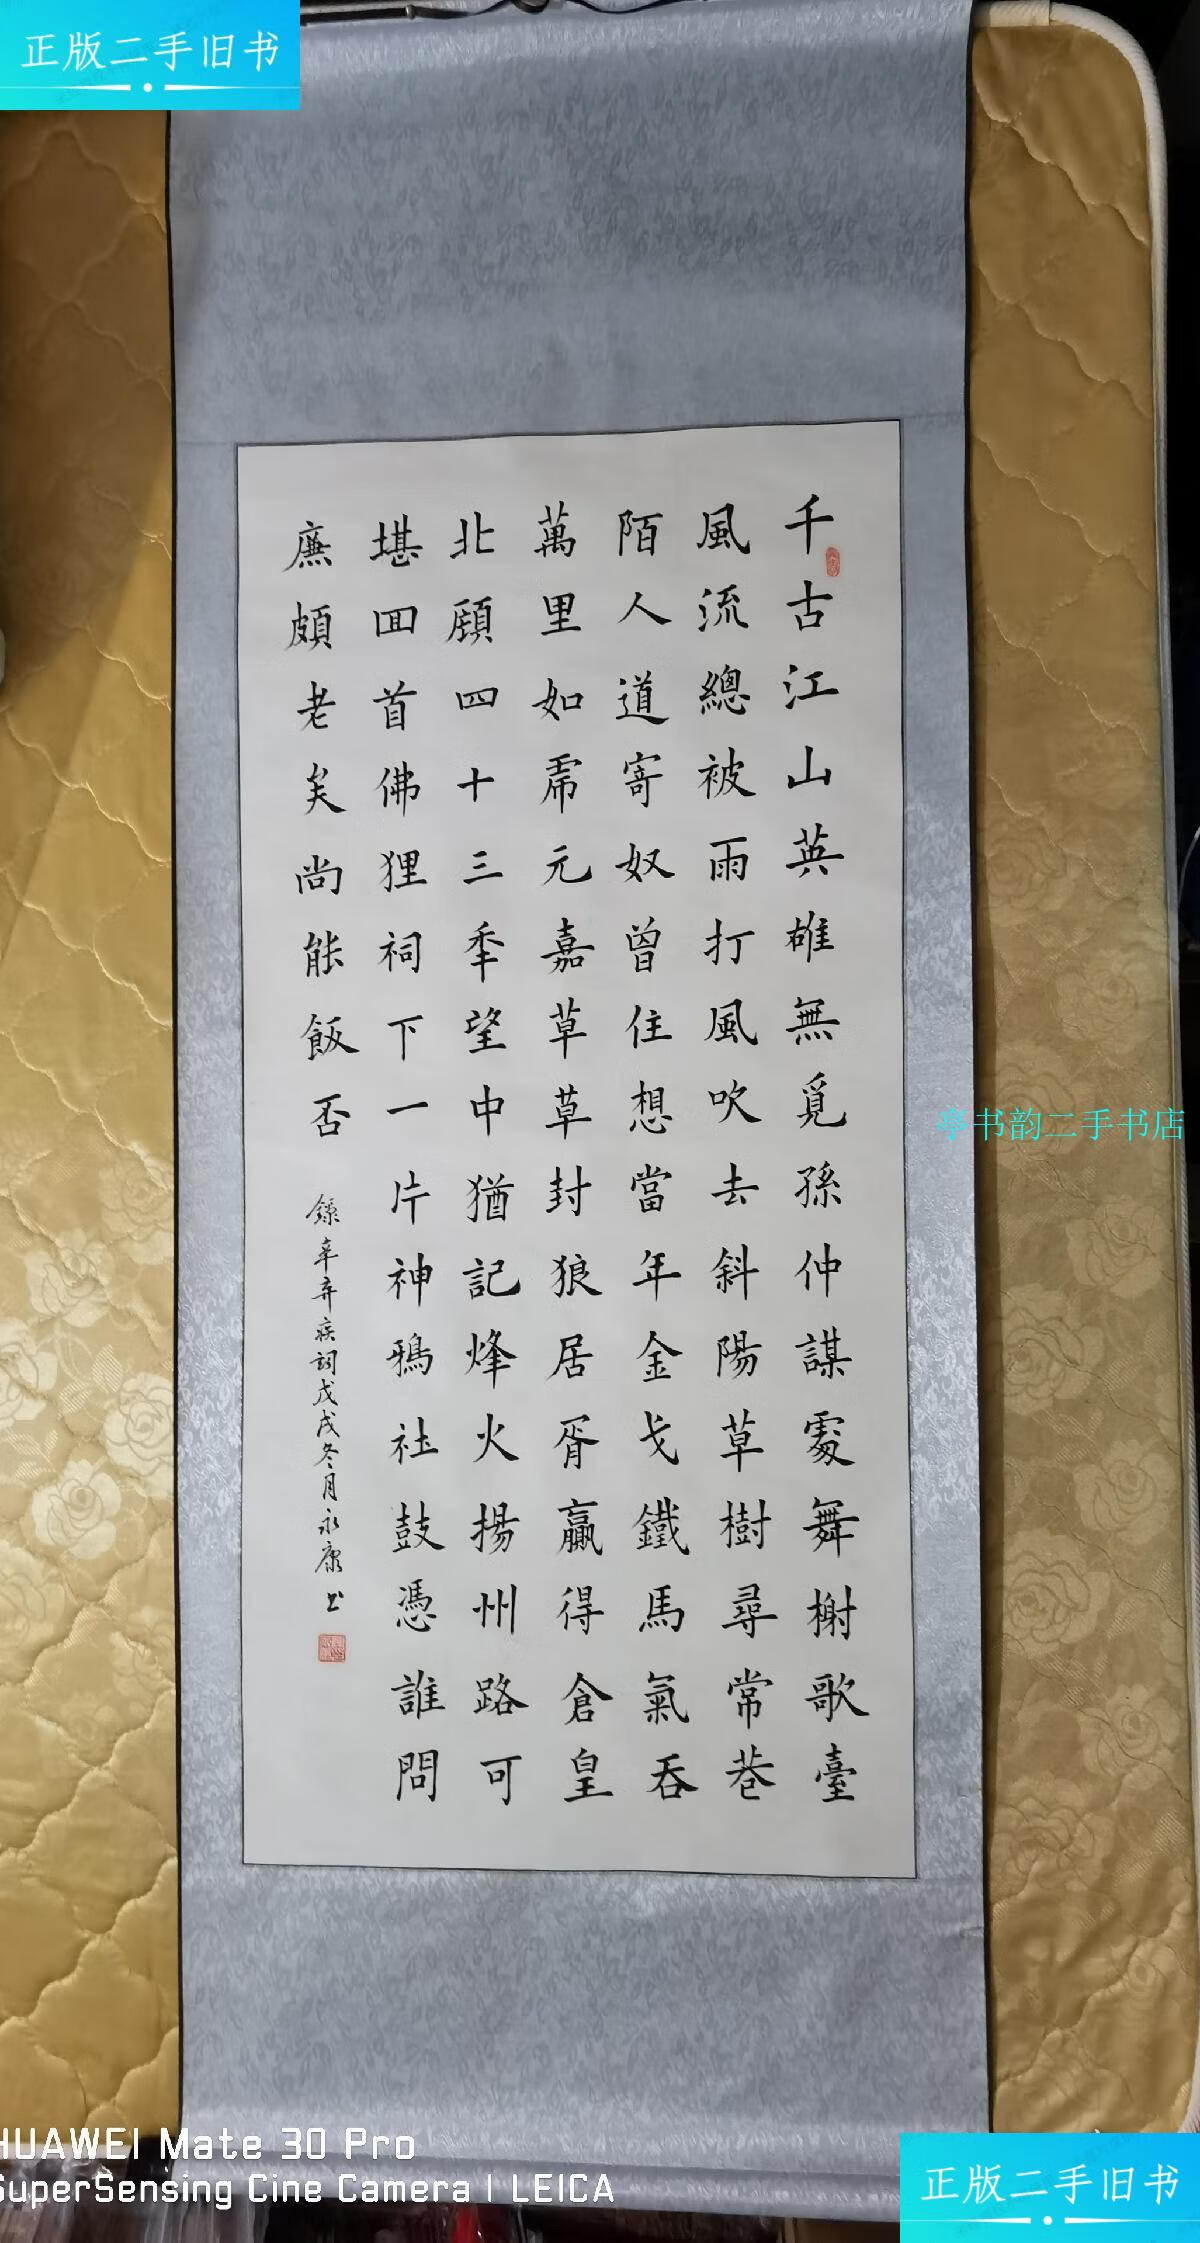 正版二手旧书
千古江山英雄無覓孫仲謀處舞榭歌臺
風流總被雨打風吹去斜陽草樹尋常巷
陌人道寄奴曾住想當年金戈鐵馬氣吞
萬里如虎元嘉草草封狼居胥贏得倉皇
北顧四十三秊望中猶記烽火揚州路可
堪回首佛狸祠下一片神鴉社鼓憑誰問
廉頗老矣尚能飯否
錄辛弃疾詞戊戌冬月永康书
亭书韵二手书店
HUAWEI Mate 30 Pro
SuperSensing Cine Camera | LEICA
正版二手旧书